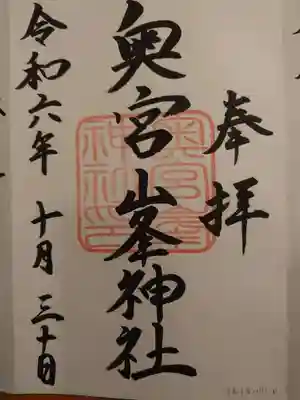 奉拝
奥宮山峯神社
令和六年 十月 三十日